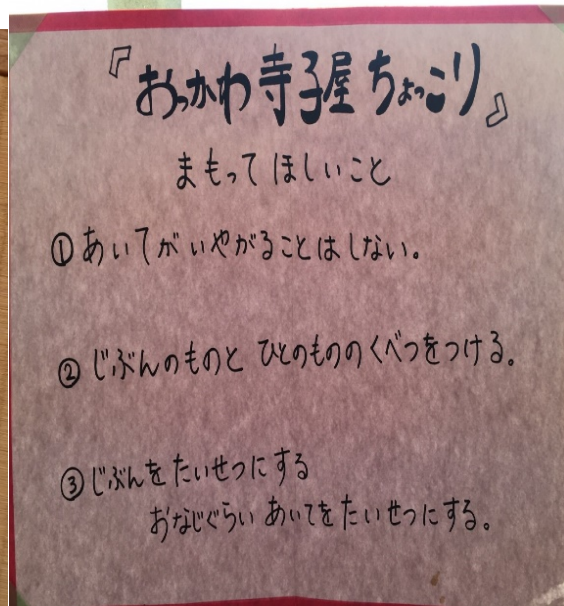 『おっかわ寺子屋ちょっこり』
まもってほしいこと
①あいてがいやがることはしない。
②じぶんのものと ひとのもののくべつをつける。
③じぶんをたいせつにする
おなじぐらい あいてをたいせつにする。